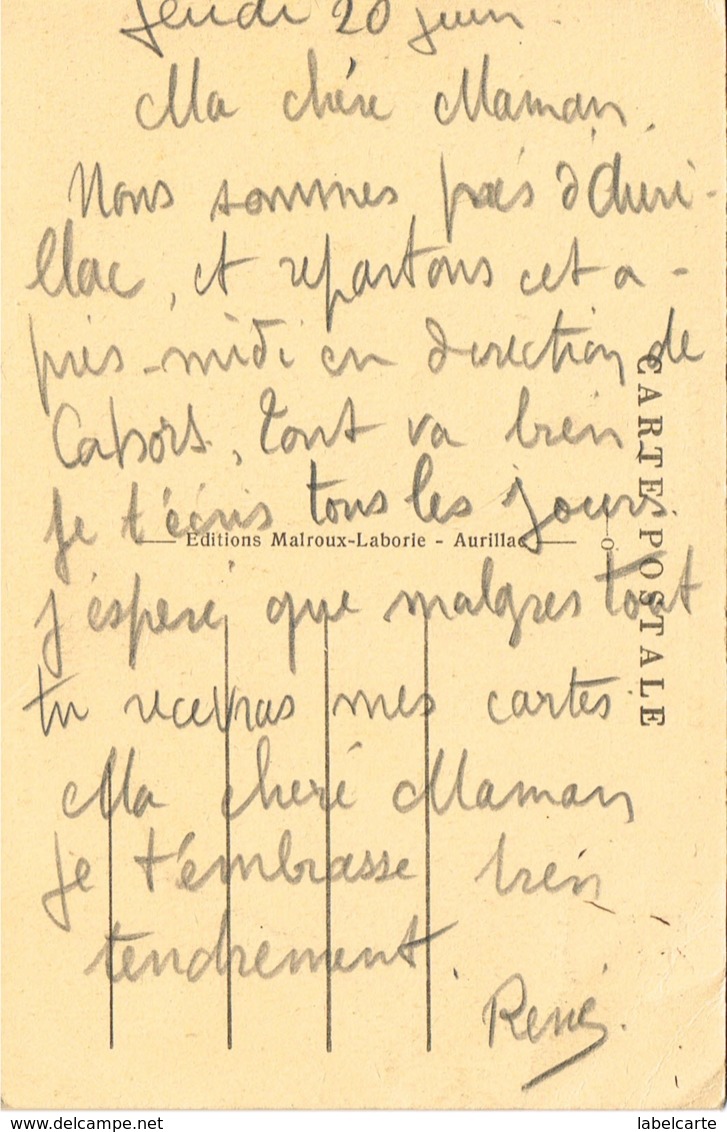 Jeudi 20 juin.
Ma chére Maman.
Nous sommes près d'Auri-
llac, et repartons cet a-
près-midi en direction de
Cahors, tout va bien,
Je t'écris tous les jours.
j'espère que malgres tout
tu recevras mes cartes
Ma cheré Maman
Je t'embrasse bien
tendrement.
René.
CARTE POSTALE
Editions Malroux-Laborie - Aurillac
delcampe.net
labelcarte